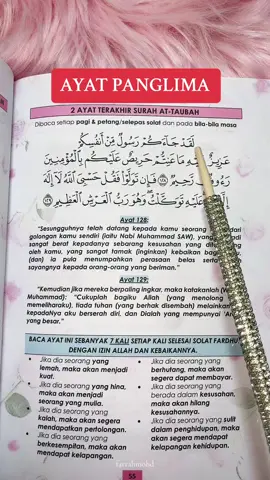 AYAT PANGLIMA
2 AYAT TERAKHIR SURAH AT-TAUBAH
Dibaca setiap pagi & petang/selepas solat dan pada bila-bila masa
لَقَدْ جَاءَكُمْ رَسُولٌ مِّنْ أَنفُسِكُمْ
عَزِيزٌ عَلَيْهِ مَا عَنِتُّمْ حَرِيصٌ عَلَيْكُم بِالْمُؤْمِنِينَ
رَءُوفٌ رَّحِيمٌ ١٢٨ فَإِن تَوَلَّوْا فَقُلْ حَسْبِيَ اللَّهُ لَا إِلَٰهَ
إِلَّا هُوَ عَلَيْهِ تَوَكَّلْتُ وَهُوَ رَبُّ الْعَرْشِ الْعَظِيمِ ١٢٩
Ayat 128:
"Sesungguhnya telah datang kepada kamu seorang dari
golongan kamu sendiri (iaitu Nabi Muhammad SAW), yang
sangat berat kepadanya sebarang kesusahan yang
oleh kamu, yang sangat tamak (inginkan) kebaikan bagi
(dan) ia pula menumpahkan perasaan belas serta
sayangnya kepada orang-orang yang beriman."
Ayat 129:
"Kemudian jika mereka berpaling ingkar, maka katakanlah (
Muhammad): "Cukuplah bagiku Allah (yang menolong
memeliharaku), tiada tuhan (yang berhak disembah) melainkan
kepadaNya aku berserah diri, dan Dialah yang mempunyai
yang besar."
BACA AYAT INI SEBANYAK 7 KALI SETIAP KALI SELESAI SOLAT FARDHU
DENGAN IZIN ALLAH DAN KEBAIKANNYA.
• Jika dia seorang yang
lemah, maka akan menjadi
kuat.
• Jika dia seorang yang hina,
maka akan menjadi
seorang yang mulia.
• Jika dia seorang yang
kalah, maka akan segera
mendapatkan pertolongan.
• Jika dia seorang yang
berkesempitan, maka akan
mendapat kelapangan.
• Jika dia seorang yang
berhutang, maka akan
segera dapat membayar.
• Jika dia seorang yang
berada dalam kesusahan,
maka akan hilang
kesusahannya.
• Jika dia seorang yang sulit
dalam penghidupan, maka
akan segera mendapat
kelapangan kehidupan.
55